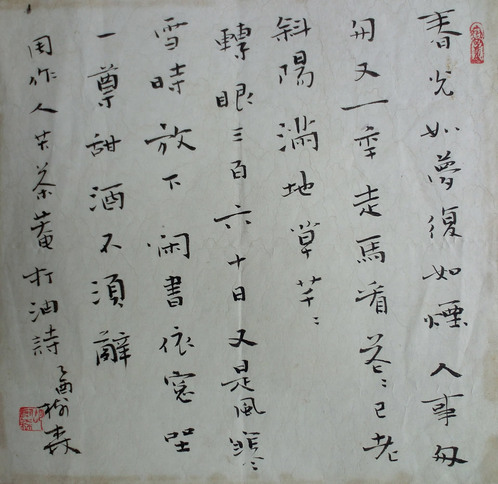 春光如夢復如煙人事匆
匆又一年走馬看花〻已老
斜陽滿地草芊〻
轉眼三百六十日又是風寒
雪時放下閑書依窗坐
一尊甜酒不須辭
周作人苦茶菴打油詩 乙酉樹森